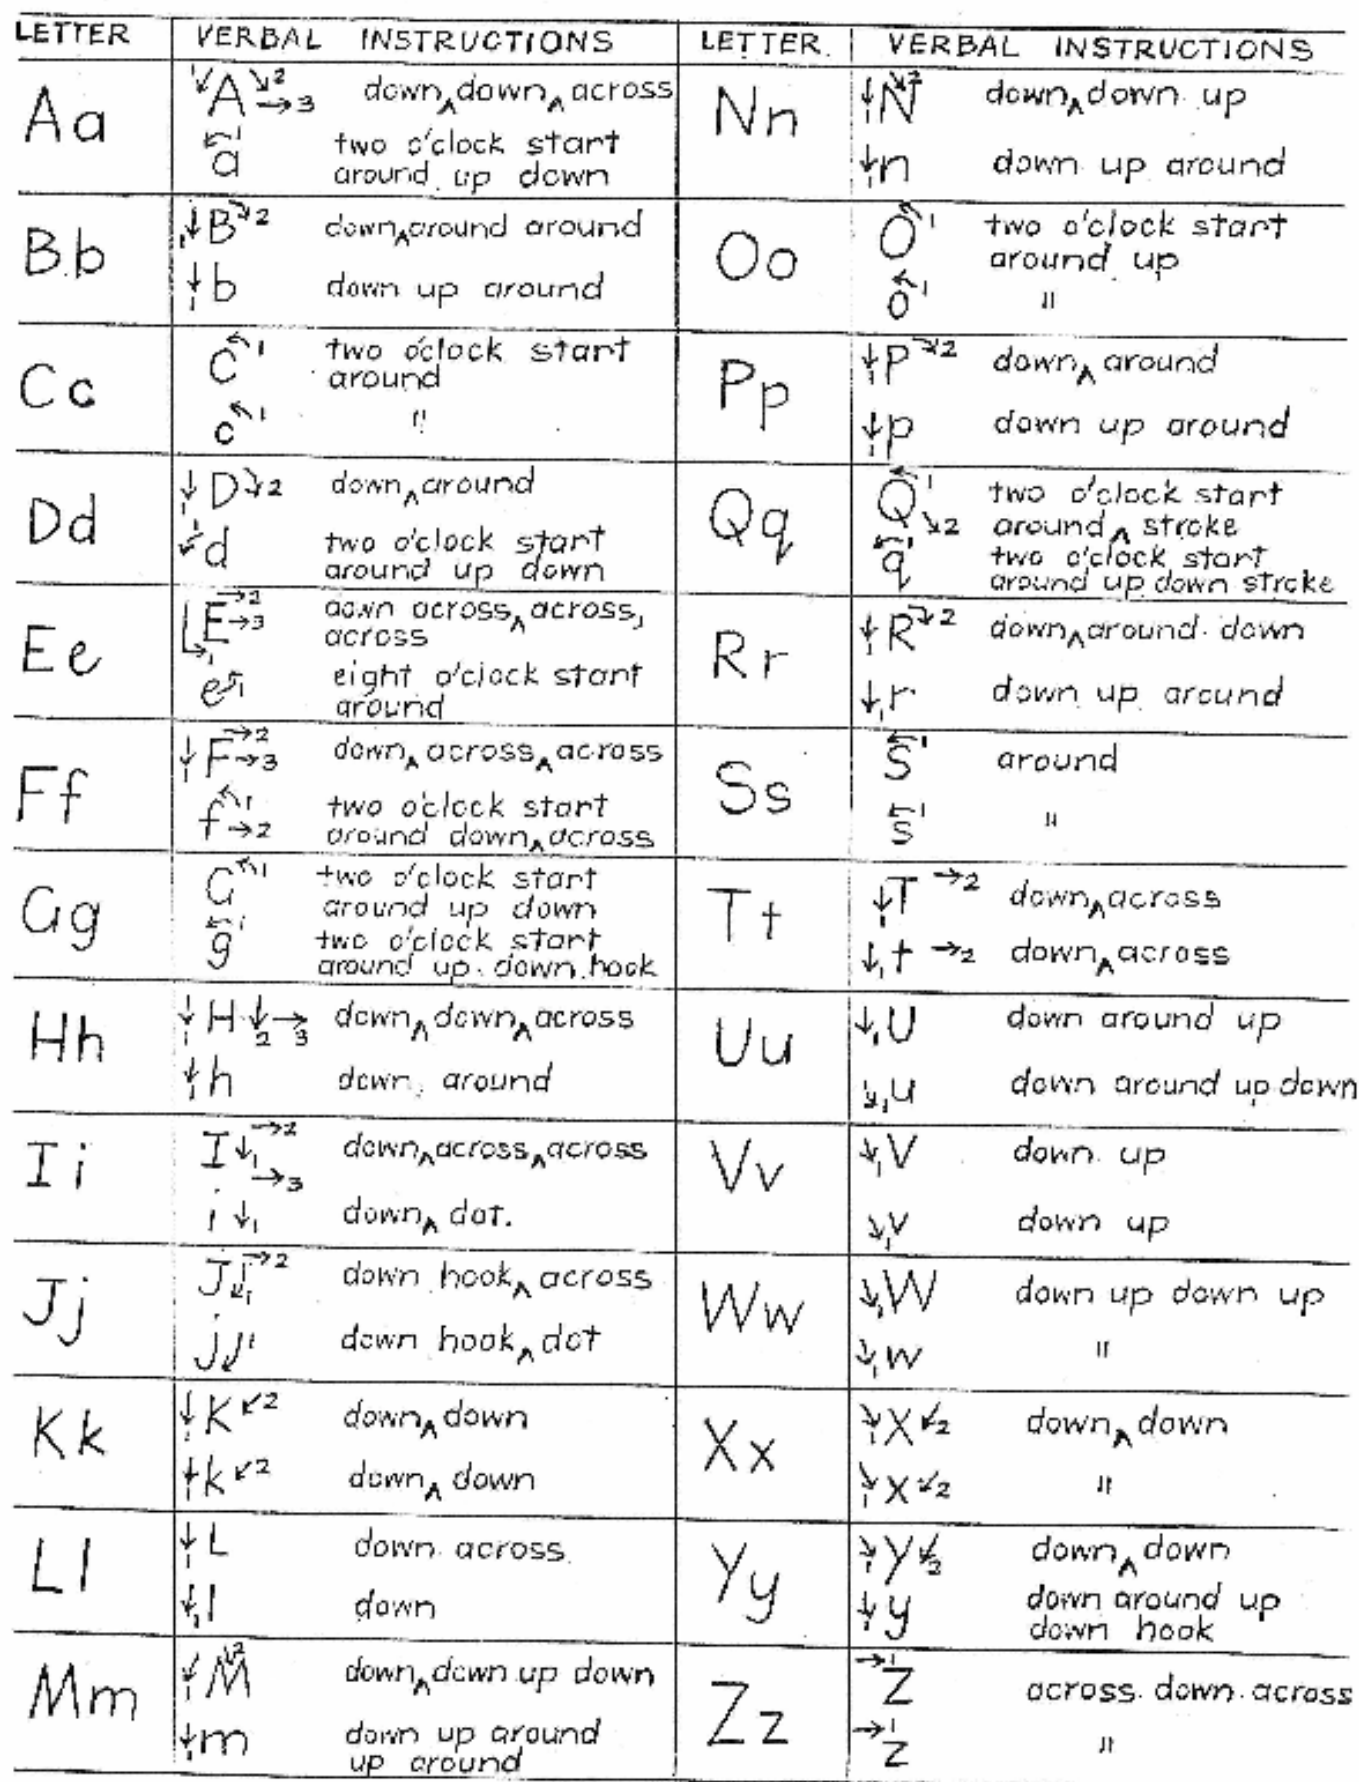 LETTER VERBAL INSTRUCTIONS
Aa
A 1 2 3 down ^ down ^ across
a 1 two o'clock start
around up down
B b
B 1 2 down ^ around around
b 1 down up around
Cc
C 1 two o'clock start
around
c 1 "
Dd
D 1 2 down ^ around
d 1 two o'clock start
around up down
Ee
E 1 2 3 down across ^ across,
across
e 1 eight o'clock start
around
Ff
F 1 2 3 down ^ across ^ across
f 1 2 two o'clock start
around down ^ across
Gg
G 1 two o'clock start
around up down
g 1 two o'clock start
around up down hook
Hh
H 1 2 3 down ^ down ^ across
h 1 down, around
Ii
I 1 2 3 down ^ across ^ across
i 1 down ^ dot.
Jj
J 1 2 down hook ^ across
j 1 down hook ^ dot
Kk
K 1 2 down ^ down
k 1 2 down ^ down
Ll
L 1 down across
l 1 down
Mm
M 1 2 down ^ down up down
m 1 down up around
up around
LETTER VERBAL INSTRUCTIONS
Nn
N 1 2 down ^ down up
n 1 down up around
Oo
O 1 two o'clock start
around up
o 1 "
Pp
P 1 2 down ^ around
p 1 down up around
Qq
Q 1 2 two o'clock start
around ^ stroke
q 1 two o'clock start
around up down stroke
Rr
R 1 2 down ^ around down
r 1 down up around
Ss
S 1 around
s 1 "
Tt
T 1 2 down ^ across
t 1 2 down ^ across
Uu
U 1 down around up
u 1 down around up down
Vv
V 1 down up
v 1 down up
Ww
W 1 down up down up
w 1 "
Xx
X 1 2 down ^ down
x 1 2 "
Yy
Y 1 2 down ^ down
y 1 down around up
down hook
Zz
Z 1 across down across
z 1 "